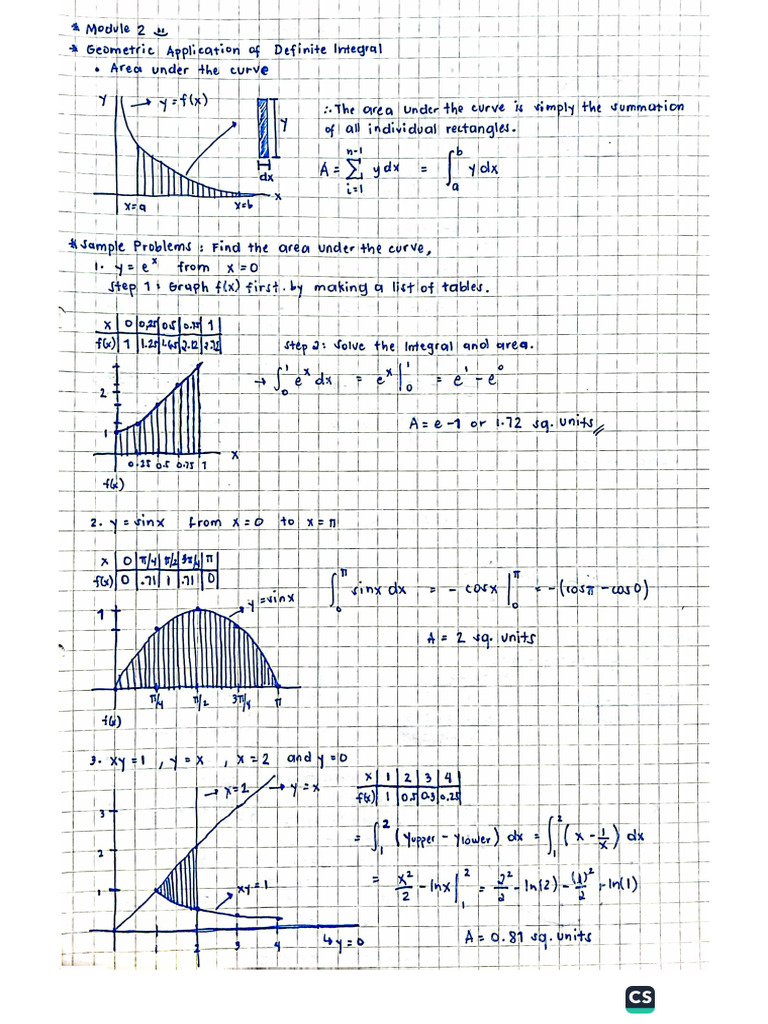 * Module 2
* Geometric Application of Definite Integral
• Area under the curve
y → y = f(x)
y
dx
x
x=a x=b
∴ The area under the curve is simply the summation
of all individual rectangles.
A = Σ y dx = ∫ y dx
n-1
i=1
b
a
* Sample Problems : Find the area under the curve,
1. y = e^x from x = 0
Step 1 : Graph f(x) first by making a list of tables.
x 0 0.25 0.5 0.75 1
f(x) 1 1.25 1.65 2.12 2.75
Step 2 : Solve the Integral and area.
→ ∫₀¹ e^x dx = e^x |₀¹ = e¹ - e⁰
A = e - 1 or 1.72 sq. units
2
1
0.25 0.5 0.75 1
x
f(x)
2. y = sinx from x = 0 to x = π
x 0 π/4 π/2 3π/4 π
f(x) 0 .71 1 .71 0
∫₀^π sinx dx = - cosx |₀^π = -(cosπ - cos0)
A = 2 sq. units
1
y = sinx
π/4 π/2 3π/4 π
f(x)
3. xy = 1 , y = x , x = 2 and y = 0
x 1 2 3 4
f(x) 1 0.5 0.3 0.25
→ x=2 → y = x
3
2
1
xy = 1
1 2 3 4
↳ y = 0
= ∫₁² (yupper - ylower) dx = ∫₁² (x - 1/x) dx
= x²/2 - lnx |₁² = 2²/2 - ln(2) - (1)²/2 + ln(1)
A = 0.81 sq. units
CS